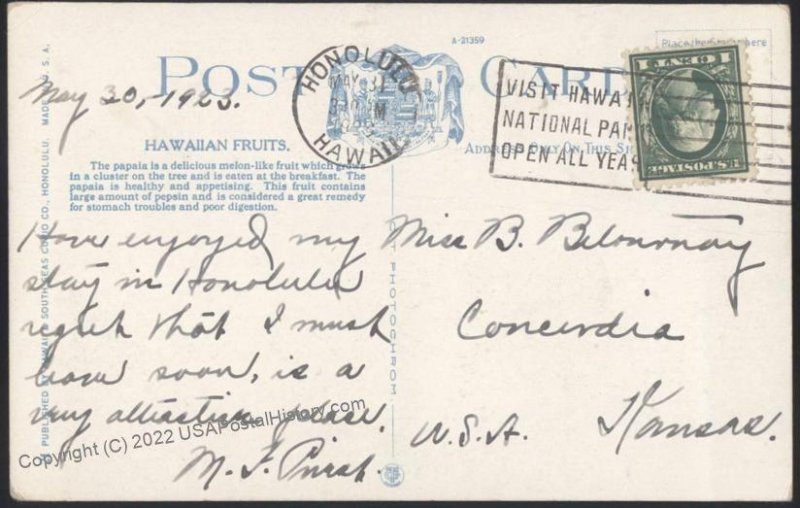 A-21359
Place the stamp here
POST CARD
HONOLULU
MAY 31
HAWAII
VISIT HAWAII
NATIONAL PAR
OPEN ALL YEA
1 CENT 1
U.S. POSTAGE
May 30, 1923.
HAWAIIAN FRUITS.
The papaia is a delicious melon-like fruit which grows
in a cluster on the tree and is eaten at the breakfast. The
papaia is healthy and appetising. This fruit contains
large amount of pepsin and is considered a great remedy
for stomach troubles and poor digestion.
ADDRESS ONLY ON THIS SI
Have enjoyed my
stay in Honolulu
regret that I must
leave soon, is a
very attractive place.
Miss B.
Concordia
Kansas.
U.S.A.
PUBLISHED BY HAWAII & SOUTH SEAS CURIO CO., HONOLULU. MADE U. S. A.
PHOTOCHROM
Copyright (C) 2022 USAPostalHistory.com